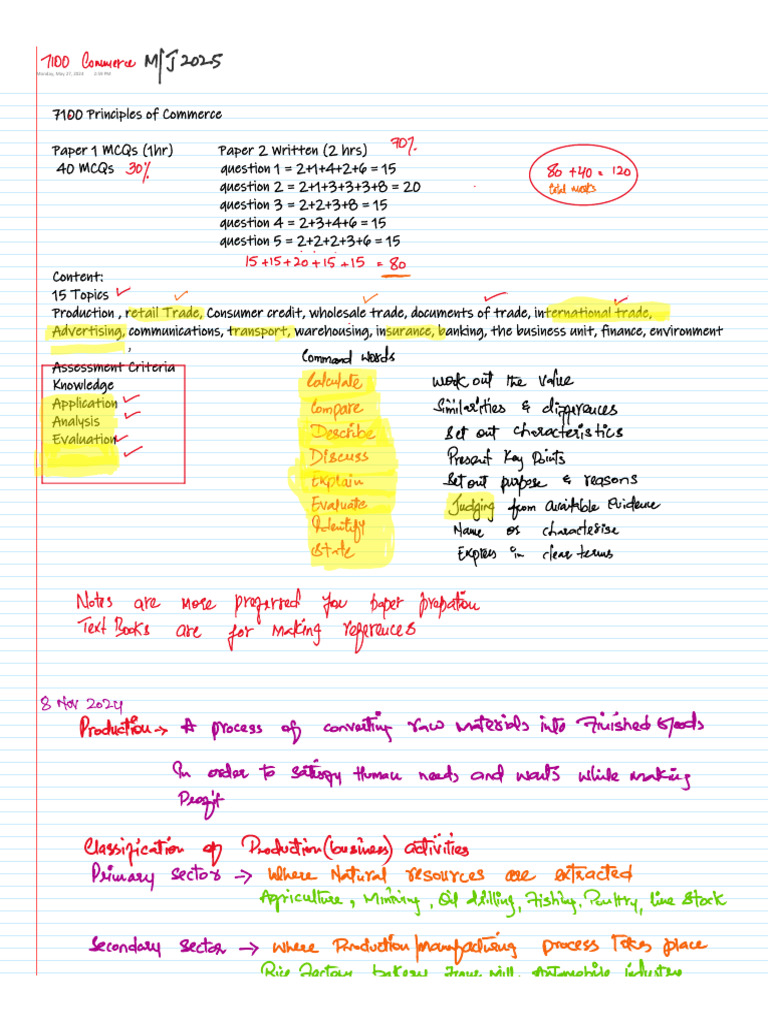 7100 Commerce M/J 2025
Monday, May 27, 2024 2:50 PM
7100 Principles of Commerce
Paper 1 MCQs (1hr) Paper 2 Written (2 hrs) 70%
40 MCQs 30% question 1 = 2+1+4+2+6 = 15
80 + 40 = 120
total marks
question 2 = 2+1+3+3+3+8 = 20
question 3 = 2+2+3+8 = 15
question 4 = 2+3+4+6 = 15
question 5 = 2+2+2+3+6 = 15
15 + 15 + 20 + 15 + 15 = 80
Content:
15 Topics
Production , retail Trade, Consumer credit, wholesale trade, documents of trade, international trade,
Advertising, communications, transport, warehousing, insurance, banking, the business unit, finance, environment
,
Assessment Criteria
Knowledge
Application
Analysis
Evaluation
Command words
Calculate work out the value
Compare Similarities & differences
Describe Set out characteristics
Discuss Present Key Points
Explain Set out purpose & reasons
Evaluate Judging from available Evidence
Identify Name or characterise
State Express in clear terms
Notes are more preferred for paper prepation
Text Books are for making references
8 Nov 2024
Production → A process of converting raw materials into Finished Goods
In order to satisfy Human needs and wants while making
Profit
Classification of Production (business) activities
Primary sector → where Natural resources are extracted
Agriculture, Minning, Oil drilling, Fishing, Poultry, live stock
Secondary sector → where Production/manufacturing process takes place
Rice Factory, bakery, Flour Mill, Automobile industry